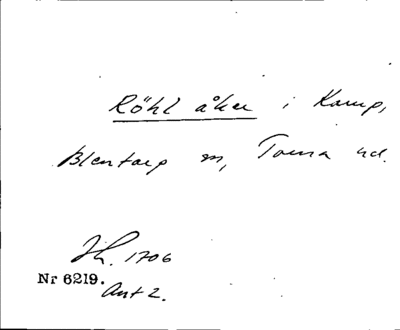 Röhl åker i Kamp,
Blentarp sn, Torna hd.
Jh. 1706
Nr 6219.
Ant 2.